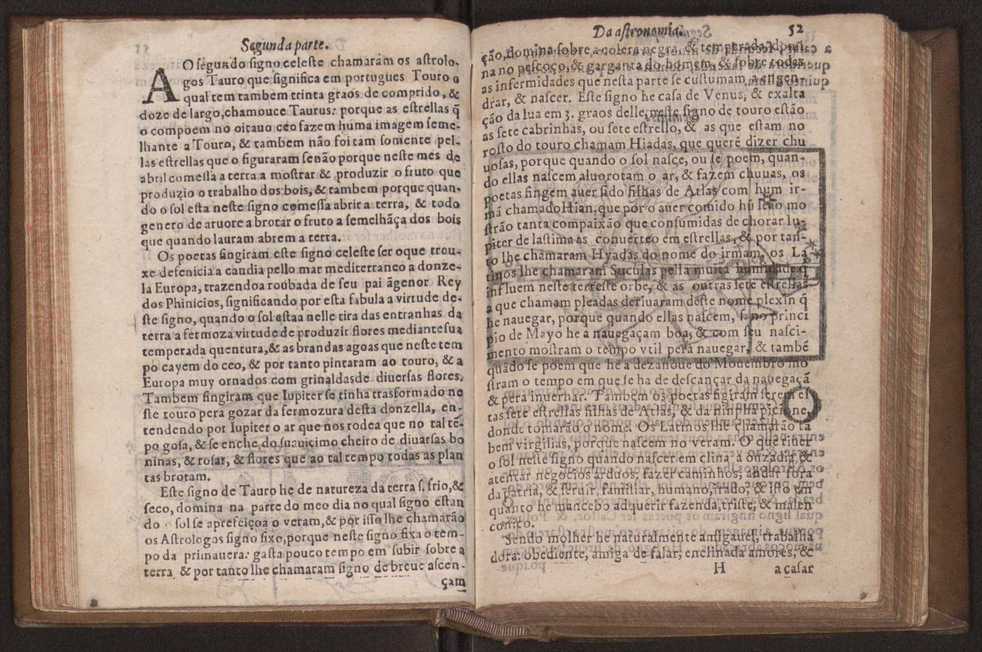 Segunda parte.
AO segundo signo celeste chamaram os astrolo-
gos Tauro que significa em portugues Touro o
qual tem tambem trinta graos de comprido, &
doze de largo, chamouce Taurus: porque as estrellas q̃
o compoem no oitauo ceo fazem huma imagem seme-
lhante a Touro, & tambem não foi tam somente pel-
las estrellas que o figuraram senão porque neste mes de
abril comessa a terra a mostrar & produzir o fruto que
produzio o trabalho dos bois, & tambem porque quan-
do o sol esta neste signo comessa abrir a terra, & todo
genero de aruore a brotar o fruto a semelhãça dos bois
que quando lauram abrem a terra.
Os poetas fingiram este signo celeste ser o que trou-
xe defenicia a candia pello mar mediterraneo a donze-
la Europa, trazendoa roubada de seu pai ãgenor Rey
dos Phinicios, significando por esta fabula a virtude de-
ste signo, quando o sol estaa nelle tira das entranhas da
terra a fermoza virtude de produzir flores mediante sua
temperada quentura, & as brandas agoas que neste tem
po cayem do ceo, & por tanto pintaram ao touro, & a
Europa muy ornados com grinaldas de diuersas flores.
Tambem fingiram que Iupiter se tinha trasformado ne
ste touro pera gozar da fermozura desta donzella, en-
tendendo por Iupiter o ar que nos rodea que no tal tẽ-
po gosa, & se enche do suauicimo cheiro de diuarsas bo
ninas, & rosas, & flores que ao tal tempo todas as plan
tas brotam.
Este signo de Tauro he de natureza da terra s. frio, &
seco, domina na parte do meo dia no qual signo estan
do o sol se aprefeiçoa o veram, & por isso lhe chamarão
os Astrologos signo fixo, porque neste signo fixa o tem-
po da primauera: gasta pouco tempo em subir sobre a
terra & por tanto lhe chamaram signo de breue ascen-
çam
Da astronomia. 52
ção, domina sobre a colera negra, &
na no pescoço, & garganta do homem, & sobre todas
as infermidades que nesta parte se custumam a engen-
drar, & nascer. Este signo he casa de Venus, & exalta
ção da lua em 3. graos delle, neste signo de touro estão
as sete cabrinhas, ou sete estrello, & as que estam no
rosto do touro chamam Hiadas, que querẽ dizer chu
uosas, porque quando o sol nasçe, ou se poem, quan-
do ellas nascem aluorotam o ar, & fazem chuuas, os
poetas fingem auer sido filhas de Atlas com hum ir-
mã chamado Hian. que por o auer comido hũ leão mo
strão tanta compaixão que consumidas de chorar Iu-
piter de lastima as conuerteo em estrellas, & por tan-
to lhe chamaram Hyadas do nome do irmam, os La
tinos lhe chamaram Suculas pella muita humidade q̃
influem neste terrestre orbe, & as outras sete estrellas
a que chamam pleadas deriuaram deste nome plexin q̃
he nauegar, porque quando ellas nascem, s. no princi
pio de Mayo he a nauegaçam boa, & com seu nasci-
mento mostram o tempo vtil pera nauegar, & tambẽ
quãdo se poem que he a dezanoue do Nouembro mo
stram o tempo em que se ha de descançar da nauegaçã
& pera inuernar. Tambem os poetas figiram serem es
tas sete estrellas filhas de Atlas, & da ninpha
donde tomarão o nome. Os Latinos lhe chamarão tã
bem virgilias, porque nascem no veram. O que tiuer
o sol neste signo quando nascer em clina a ouzadia, &
atentar negocios arduos, fazer caminhos, andar fora
da patria, & seruir, familiar, humano, irado, & isto em
quanto he mancebo adquerir fazenda, triste, & malen
conico.
Sendo molher he naturalmente amigauel, trabalha
dora: obediente, amiga de falar, enclinada amores, &
H a casar